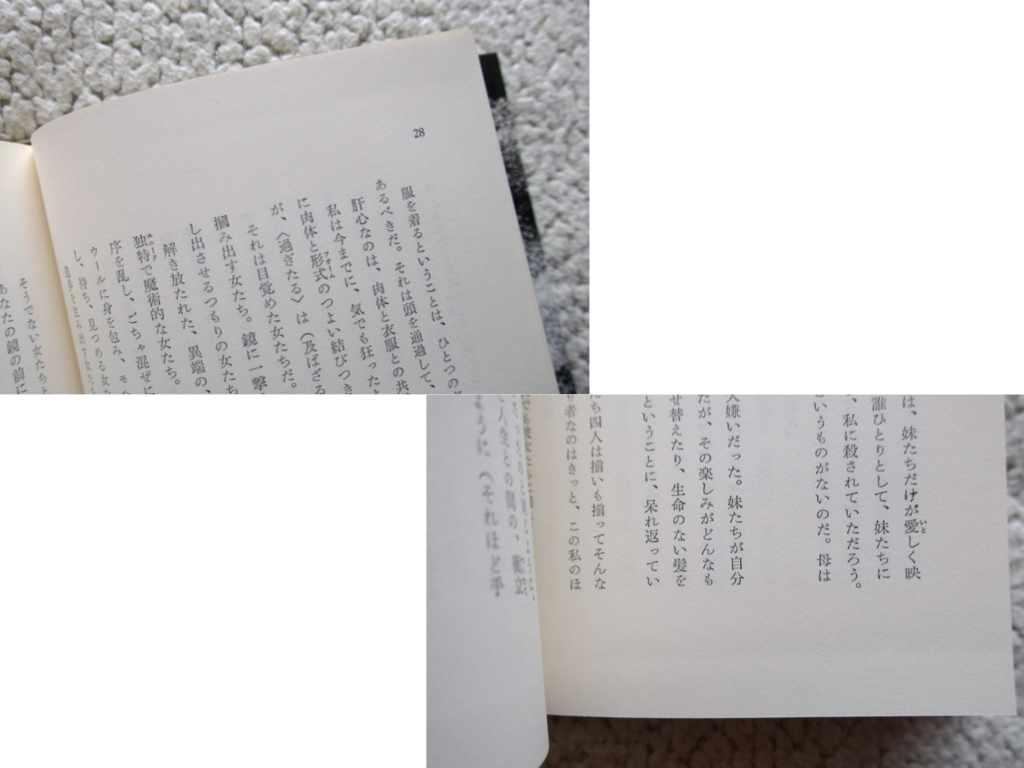 28
服を着るということは、ひとつの
あるべきだ。それは頭を通過して、
肝心なのは、肉体と衣服との共
私は今までに、気でも狂ったと
に肉体と形式のつよい結びつき
フォーム
が、〈過ぎたる〉は（及ばざる
それは目覚めた女たちだ。
摑み出す女たち。鏡に一撃
し出させるつもりの女たち
解き放たれた、異端の、
独特で魔術的な女たち。
ユニーク
序を乱し、ごちゃ混ぜに
ウールに身を包み、そ
し、待ち、見つめる女
そうでない女たちと
あなたの鏡の前に
は、妹たちだけが愛しく映
いと
誰ひとりとして、妹たちに
、私に殺されていただろう。
というものがないのだ。母は
人嫌いだった。妹たちが自分
たが、その楽しみがどんなも
せ替えたり、生命のない髪を
ということに、呆れ返ってい
ち四人は揃いも揃ってそんな
り者なのはきっと、この私のほ
人生との間の、
ように〈それほど手